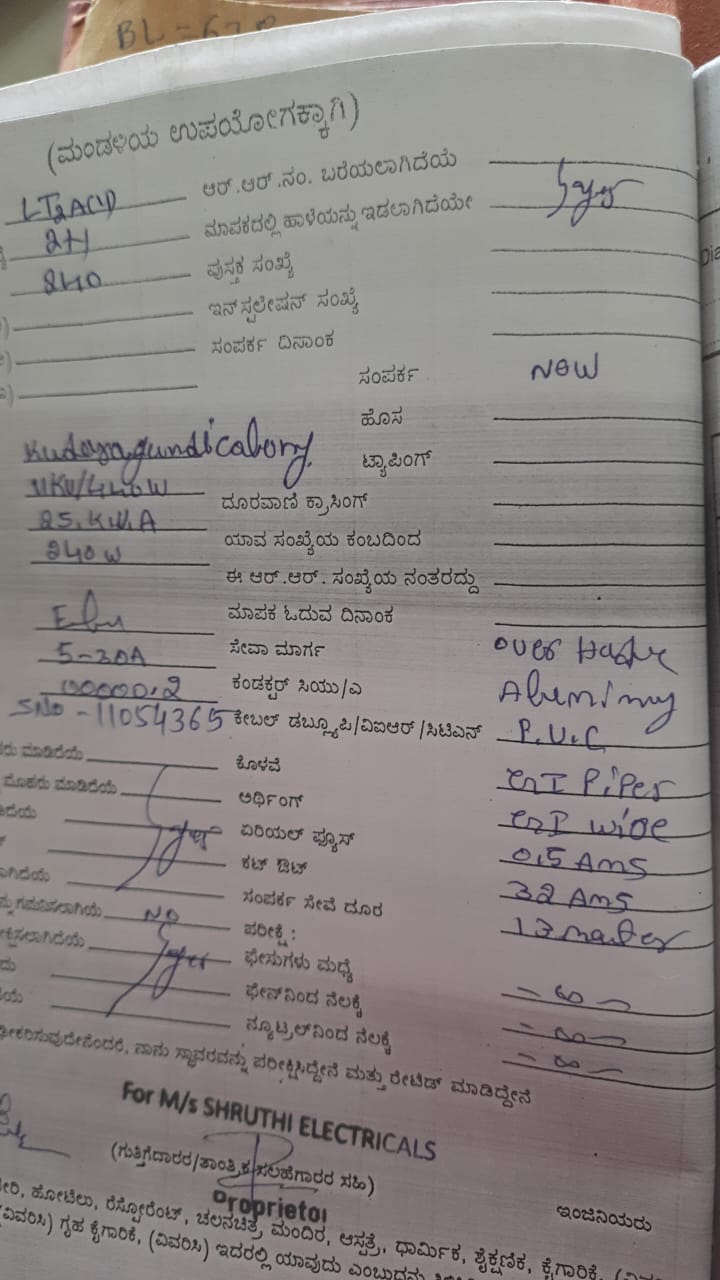 BL = 67
(ಮಂಡಳಿಯ ಉಪಯೋಗಕ್ಕಾಗಿ)
LT2A(1)D ಆರ್.ಆರ್.ನಂ. ಬರೆಯಲಾಗಿದೆಯೆ
2H ಮಾಪಕದಲ್ಲಿ ಹಾಳೆಯನ್ನು ಇಡಲಾಗಿದೆಯೇ yes
240 ಪುಸ್ತಕ ಸಂಖ್ಯೆ
ಇನ್‌ಸ್ಟಲೇಷನ್ ಸಂಖ್ಯೆ
ಸಂಪರ್ಕ ದಿನಾಂಕ
ಸಂಪರ್ಕ NEW
ಹೊಸ
Kudoragundi colony. ಟ್ಯಾಪಿಂಗ್
11KV/440W ದೂರವಾಣಿ ಕ್ರಾಸಿಂಗ್
25.K.V.A ಯಾವ ಸಂಖ್ಯೆಯ ಕಂಬದಿಂದ
240 W ಈ ಆರ್.ಆರ್. ಸಂಖ್ಯೆಯ ನಂತರದ್ದು
ಮಾಪಕ ಓದುವ ದಿನಾಂಕ
5-30A ಸೇವಾ ಮಾರ್ಗ over
00000.2 ಕಂಡಕ್ಟರ್ ಸಿಯು/ಎ
SNo - 11054365 ಕೇಬಲ್ ಡಬ್ಲ್ಯೂಪಿ/ವಿಐಆರ್/ಸಿಟಿಎಸ್ P.V.C
ಮಾಡಿದೆಯೆ ಕೊಳವೆ GI Pipes
ಮೊಹರು ಮಾಡಿದೆಯೆ ಅರ್ಥಿಂಗ್ GI wire
ಏರಿಯಲ್ ಫ್ಯೂಸ್ 0.5 Ams
yes ಕಟ್ ಔಟ್ 32 Ams
ಸಂಪರ್ಕ ಸೇವೆ ದೂರ 13 mater
ಗಮನಿಸಲಾಗಿಯೆ NO ಪರೀಕ್ಷೆ :
yes ಫೇಸುಗಳು ಮಧ್ಯೆ - ∞ -
ಫೇಸ್‌ನಿಂದ ನೆಲಕ್ಕೆ - ∞ -
ನ್ಯೂಟ್ರಲ್‌ನಿಂದ ನೆಲಕ್ಕೆ - ∞ -
ದೃಢೀಕರಿಸುವುದೇನೆಂದರೆ, ನಾನು ಸ್ಥಾವರವನ್ನು ಪರೀಕ್ಷಿಸಿದ್ದೇನೆ ಮತ್ತು ರೇಟಿಡ್ ಮಾಡಿದ್ದೇನೆ
For M/s SHRUTHI ELECTRICALS
(ಗುತ್ತಿಗೆದಾರರ/ತಾಂತ್ರಿಕ ಸಲಹೆಗಾರರ ಸಹಿ)
Proprietor
ಇಂಜಿನಿಯರು
ಹೋಟೆಲು, ರೆಸ್ಟೋರೆಂಟ್, ಚಲನಚಿತ್ರ ಮಂದಿರ, ಆಸ್ಪತ್ರೆ, ಧಾರ್ಮಿಕ, ಶೈಕ್ಷಣಿಕ, ಕೈಗಾರಿಕೆ,
(ವಿವರಿಸಿ) ಗೃಹ ಕೈಗಾರಿಕೆ, (ವಿವರಿಸಿ) ಇದರಲ್ಲಿ ಯಾವುದು